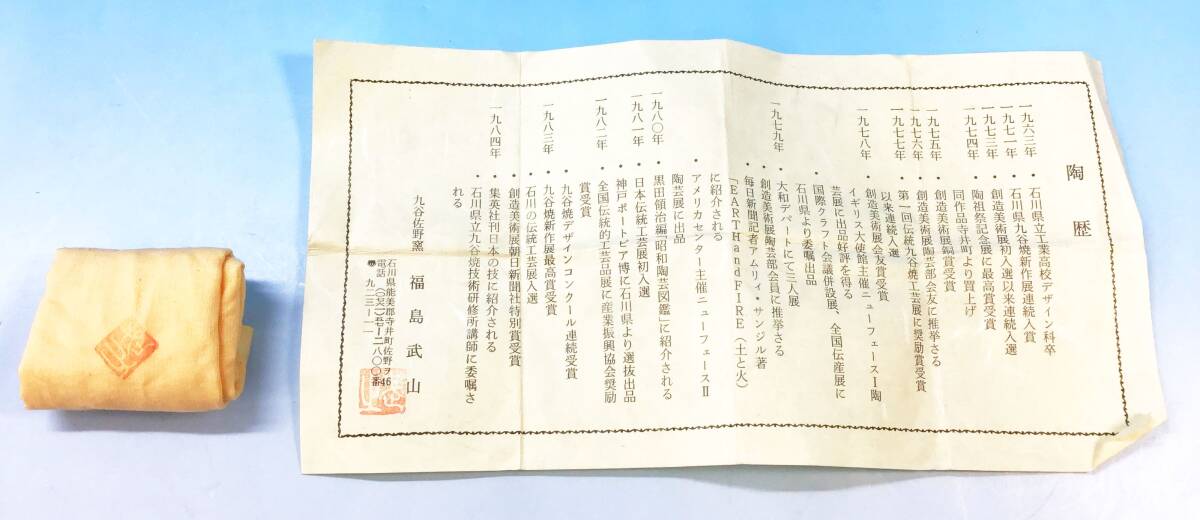 陶歴
一九六二年 • 石川県立工業高校デザイン科卒
一九七一年 • 石川県九谷焼新作展連続入賞
一九七三年 • 創造美術展初入選以来連続入選
一九七四年 • 陶祖祭記念展に最高賞受賞
同作品寺井町より買上げ
一九七五年 • 創造美術展岡賞受賞
一九七六年 • 創造美術展陶芸部会友に推挙さる
一九七七年 • 第一回伝統九谷焼工芸展に奨励賞受賞
以来連続入選
一九七八年 • 創造美術展会友賞受賞
• イギリス大使館主催ニューフェースⅠ陶
芸展に出品好評を得る
• 国際クラフト会議併設展、全国伝産展に
石川県より委嘱出品
一九七九年 • 大和デパートにて三人展
• 創造美術展陶芸部会員に推挙さる
• 毎日新聞記者アムリィ・サンジル著
「EARTH and FIRE（土と火）
に紹介される
• アメリカセンター主催ニューフェースⅡ
陶芸展に出品
一九八〇年 • 黒田領治編「昭和陶芸図鑑」に紹介される
一九八一年 • 日本伝統工芸展初入選
• 神戸ポートピア博に石川県より選抜出品
一九八二年 • 全国伝統的工芸品展に産業振興協会奨励
賞受賞
• 九谷焼デザインコンクール連続受賞
一九八三年 • 九谷焼新作展最高賞受賞
• 石川の伝統工芸展入選
• 創造美術展朝日新聞社特別賞受賞
一九八四年 • 集英社刊日本の技に紹介される
• 石川県立九谷焼技術研修所講師に委嘱さ
れる
九谷佐野窯 福島武山
石川県能美郡寺井町佐野ヲ46
電話（〇七六一）五七-二八〇〇番
〒九二三-一一